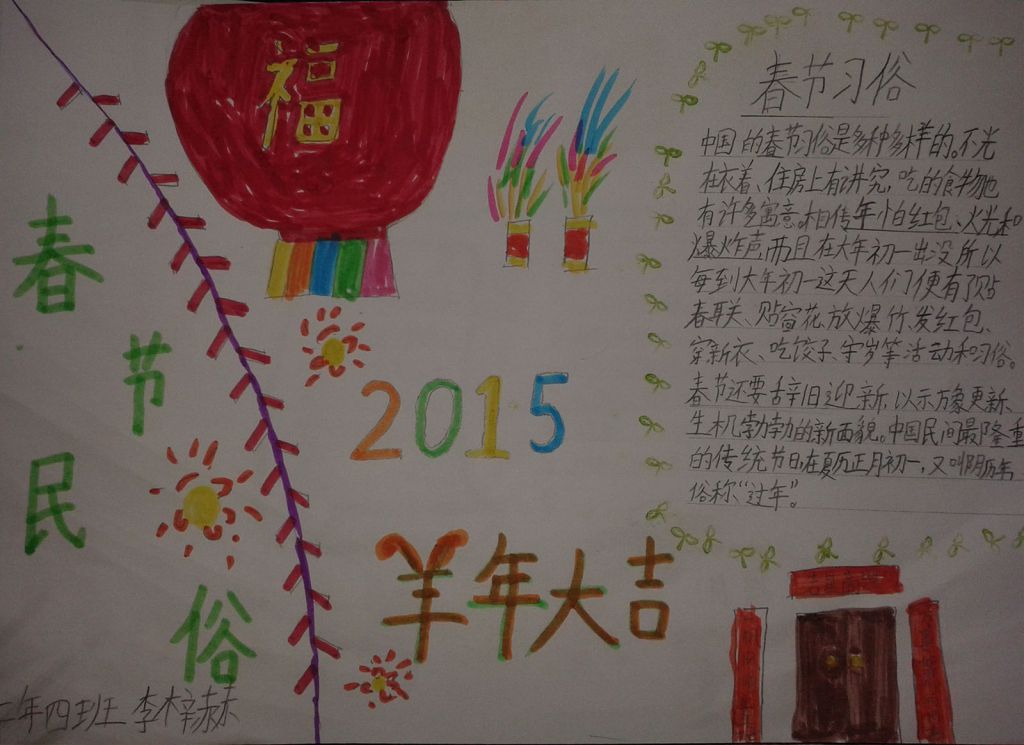 福
春节民俗
2015
羊年大吉
二年四班 李梓赫
春节习俗
中国的春节习俗是多种多样的。不光
在衣着、住房上有讲究，吃的食物也
有许多寓意。相传年怕红包、火光和
爆炸声，而且在大年初一出没，所以
每到大年初一这天人们便有了贴
春联、贴窗花、放爆竹、发红包、
穿新衣、吃饺子、守岁等活动和习俗。
春节还要辞旧迎新，以示万象更新、
生机勃勃的新面貌。中国民间最隆重
的传统节日，在夏历正月初一，又叫阴历年，
俗称“过年”。